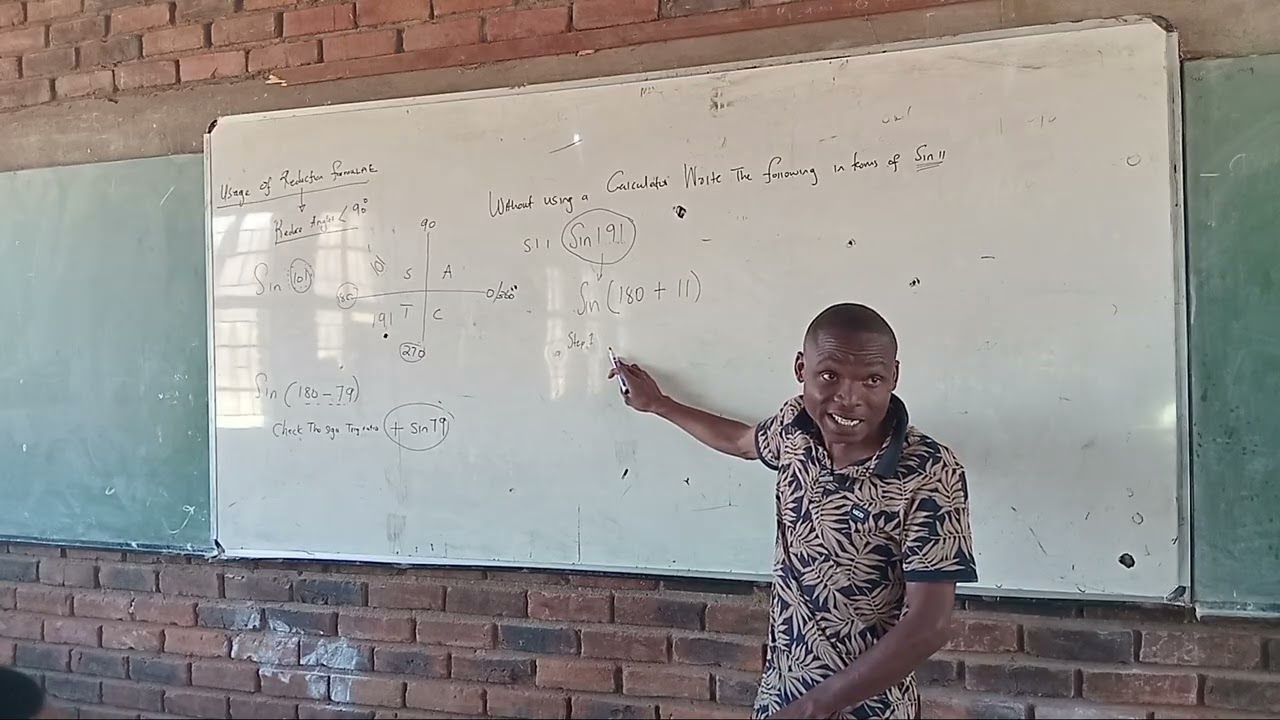 Usage of Reduction formulae
Reduce Angles < 90°
Sin 101
90
101
S A
180
0/360°
191 T C
270
Sin (180 - 79)
Check The sign Trig ratio + sin 79
Without using a Calculator Write The following in terms of Sin 11
5.1.1 Sin 191
Sin (180 + 11)
Step 1